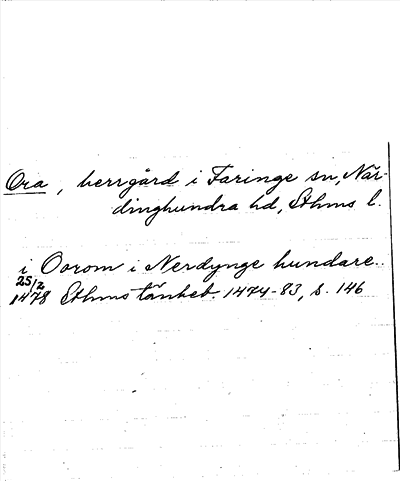 Ora, herrgård i Faringe sn, När-
dinghundra hd, Sthms l.
i Oorom i Nerdynge hundare..
25/2
1478 Sthms tänkeb. 1474-83, s. 146